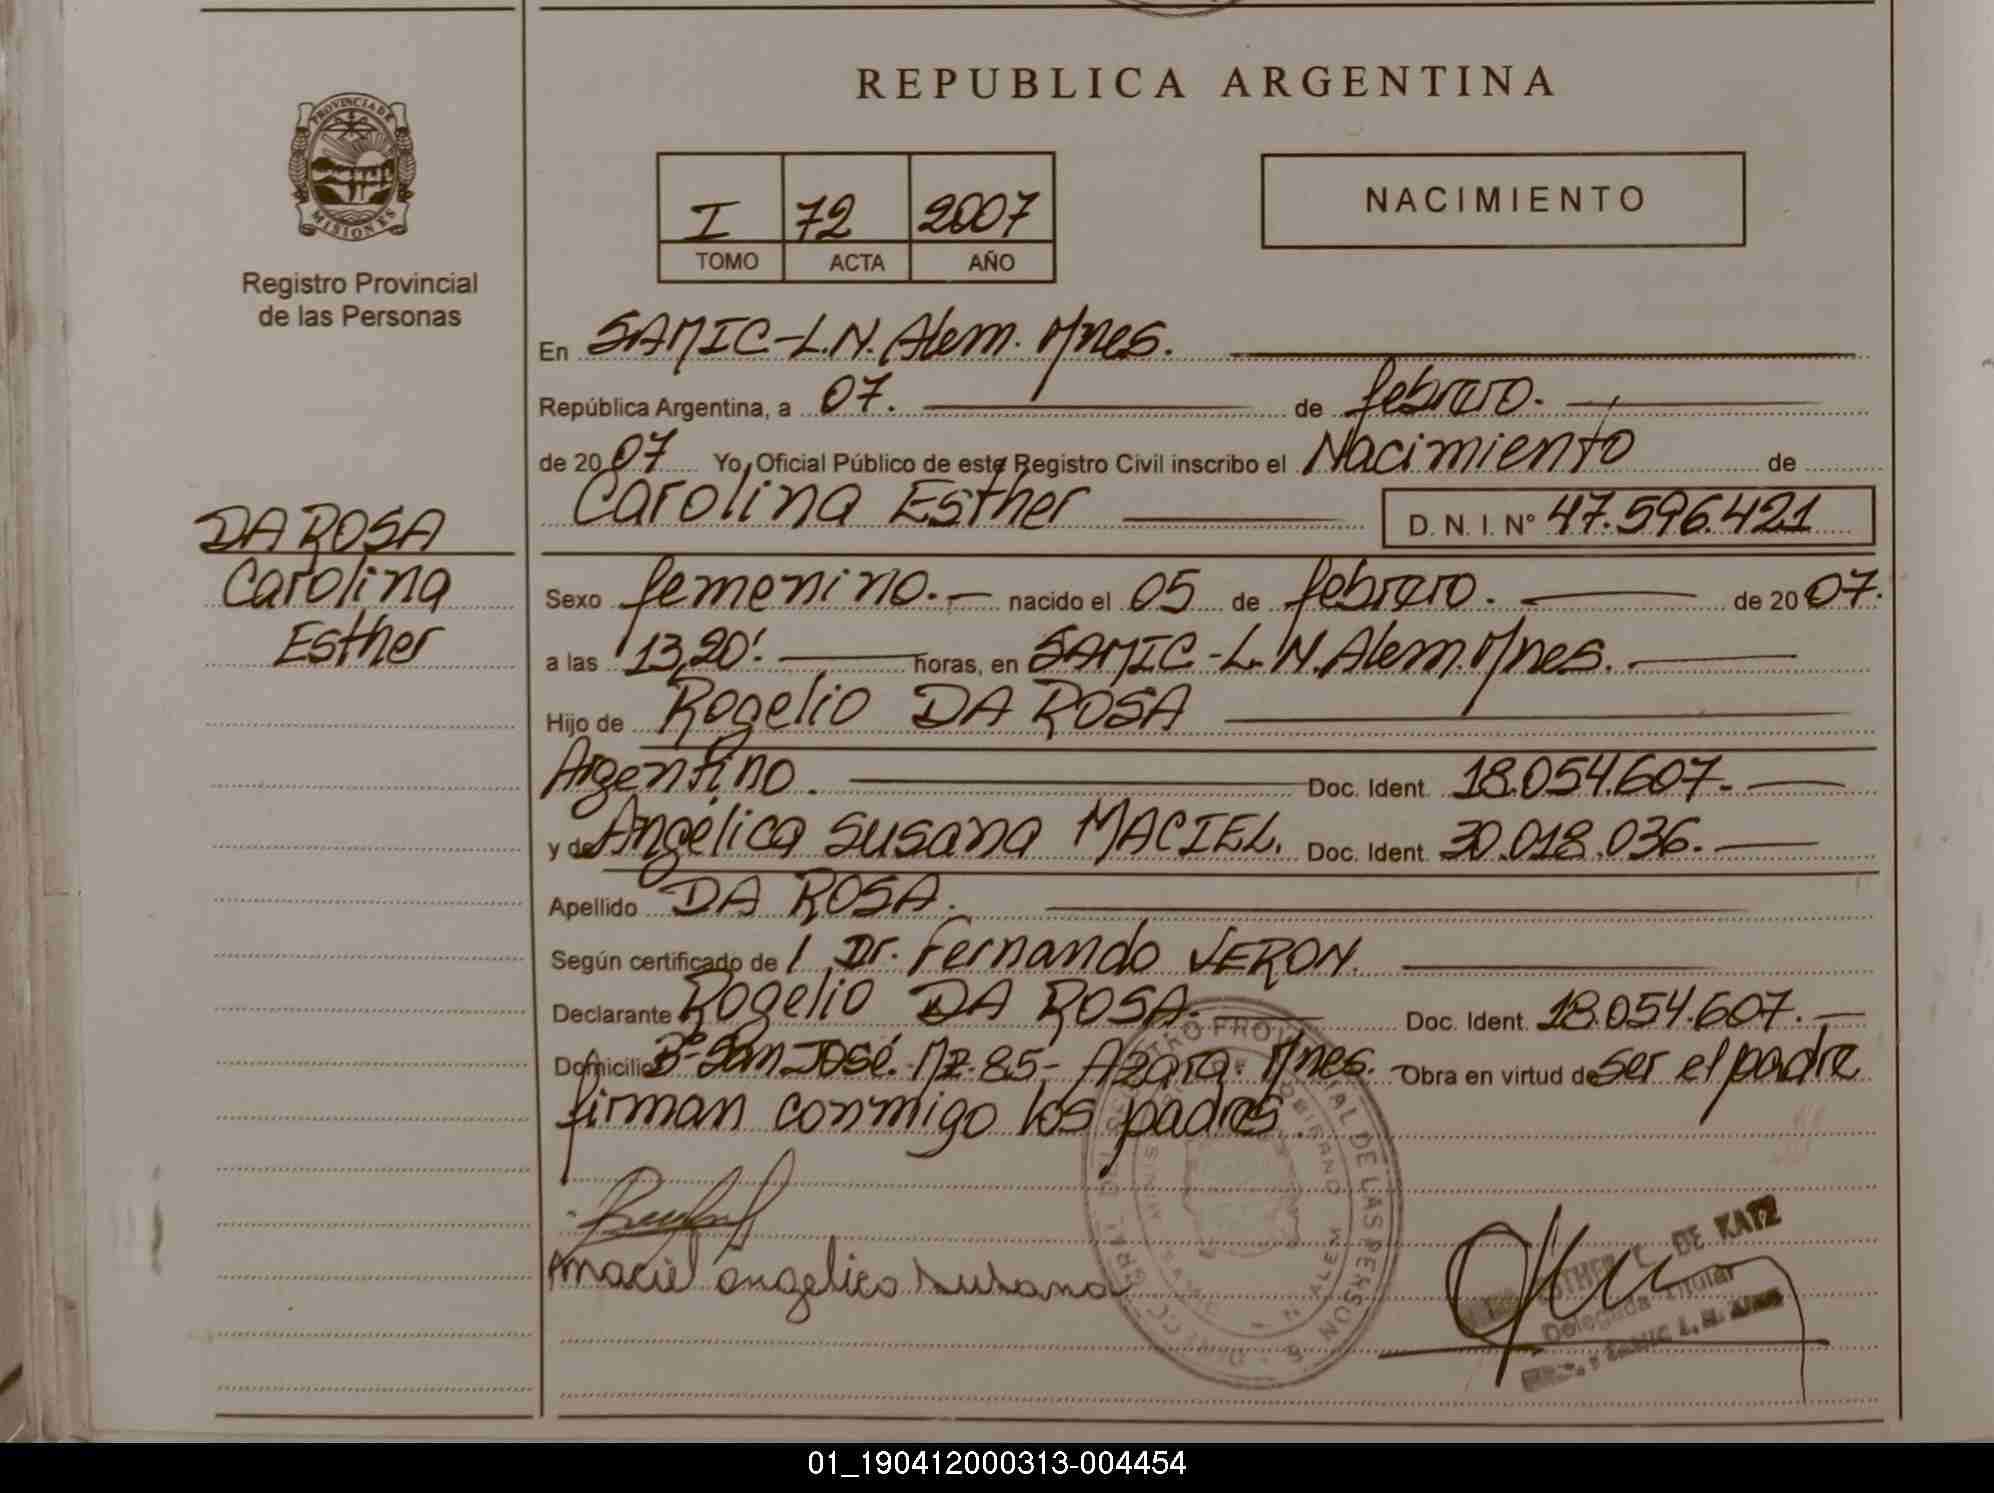 REPUBLICA ARGENTINA
PROVINCIA DE
MISIONES
Registro Provincial
de las Personas
I 72 2007
TOMO ACTA AÑO
NACIMIENTO
En SAMIC-L.N.Alem. Mnes.
República Argentina, a 07. de febrero.
de 2007 Yo, Oficial Público de este Registro Civil inscribo el Nacimiento de
Carolina Esther D. N. I. N° 47.596.421
DA ROSA
Carolina
Esther
Sexo femenino. nacido el 05 de febrero. de 2007.
a las 13,20'. horas, en SAMIC-L.N.Alem.Mnes.
Hijo de Rogelio DA ROSA
Argentino. Doc. Ident. 18.054.607.
y de Angélica Susana MACIEL. Doc. Ident. 30.018.036.
Apellido DA ROSA.
Según certificado de / Dr. Fernando VERON.
Declarante Rogelio DA ROSA. Doc. Ident. 18.054.607.
Domicilio B° San José. Mz. 85- Azara. Mnes. Obra en virtud de ser el padre
firman conmigo los padres.
Maciel Angelica Susana
DE KATZ
Delegada Titular
01_190412000313-004454